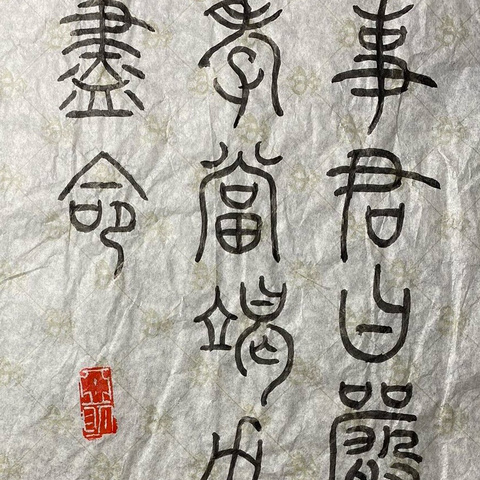 事君曰嚴
孝當竭力
盡命